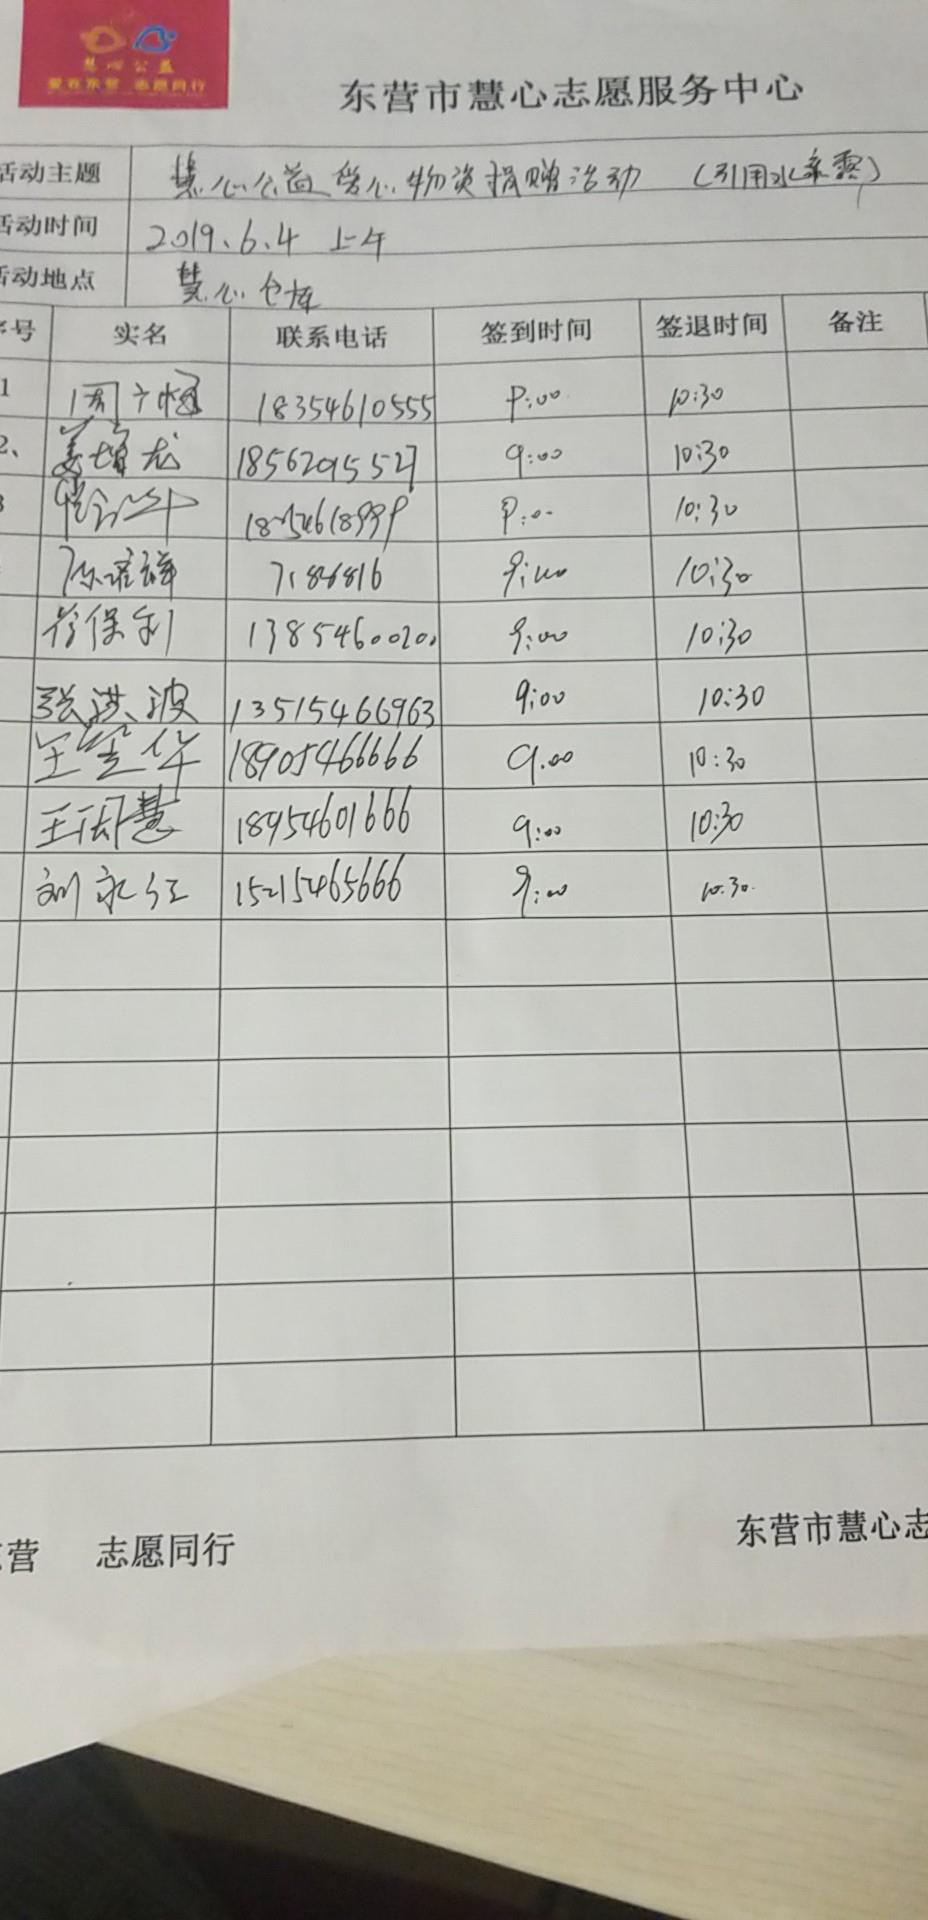 慧心公益
爱在东营 志愿同行
东营市慧心志愿服务中心
活动主题 慧心公益爱心物资捐赠活动 (引用水
活动时间 2019.6.4 上午
活动地点 慧心仓库
序号 实名 联系电话 签到时间 签退时间 备注
1 周广 18354610555 9:00 10:30
2、 姜增龙 18562095527 9:00 10:30
3 9:00 10:30
陈 祥 7186816 9:00 10:30
保利 1385460020 9:00 10:30
张洪波 13515466963 9:00 10:30
王 华 18905466666 9:00 10:30
王 慧 18954601666 9:00 10:30
刘永红 15215465666 9:00 10:30
东营 志愿同行
东营市慧心志